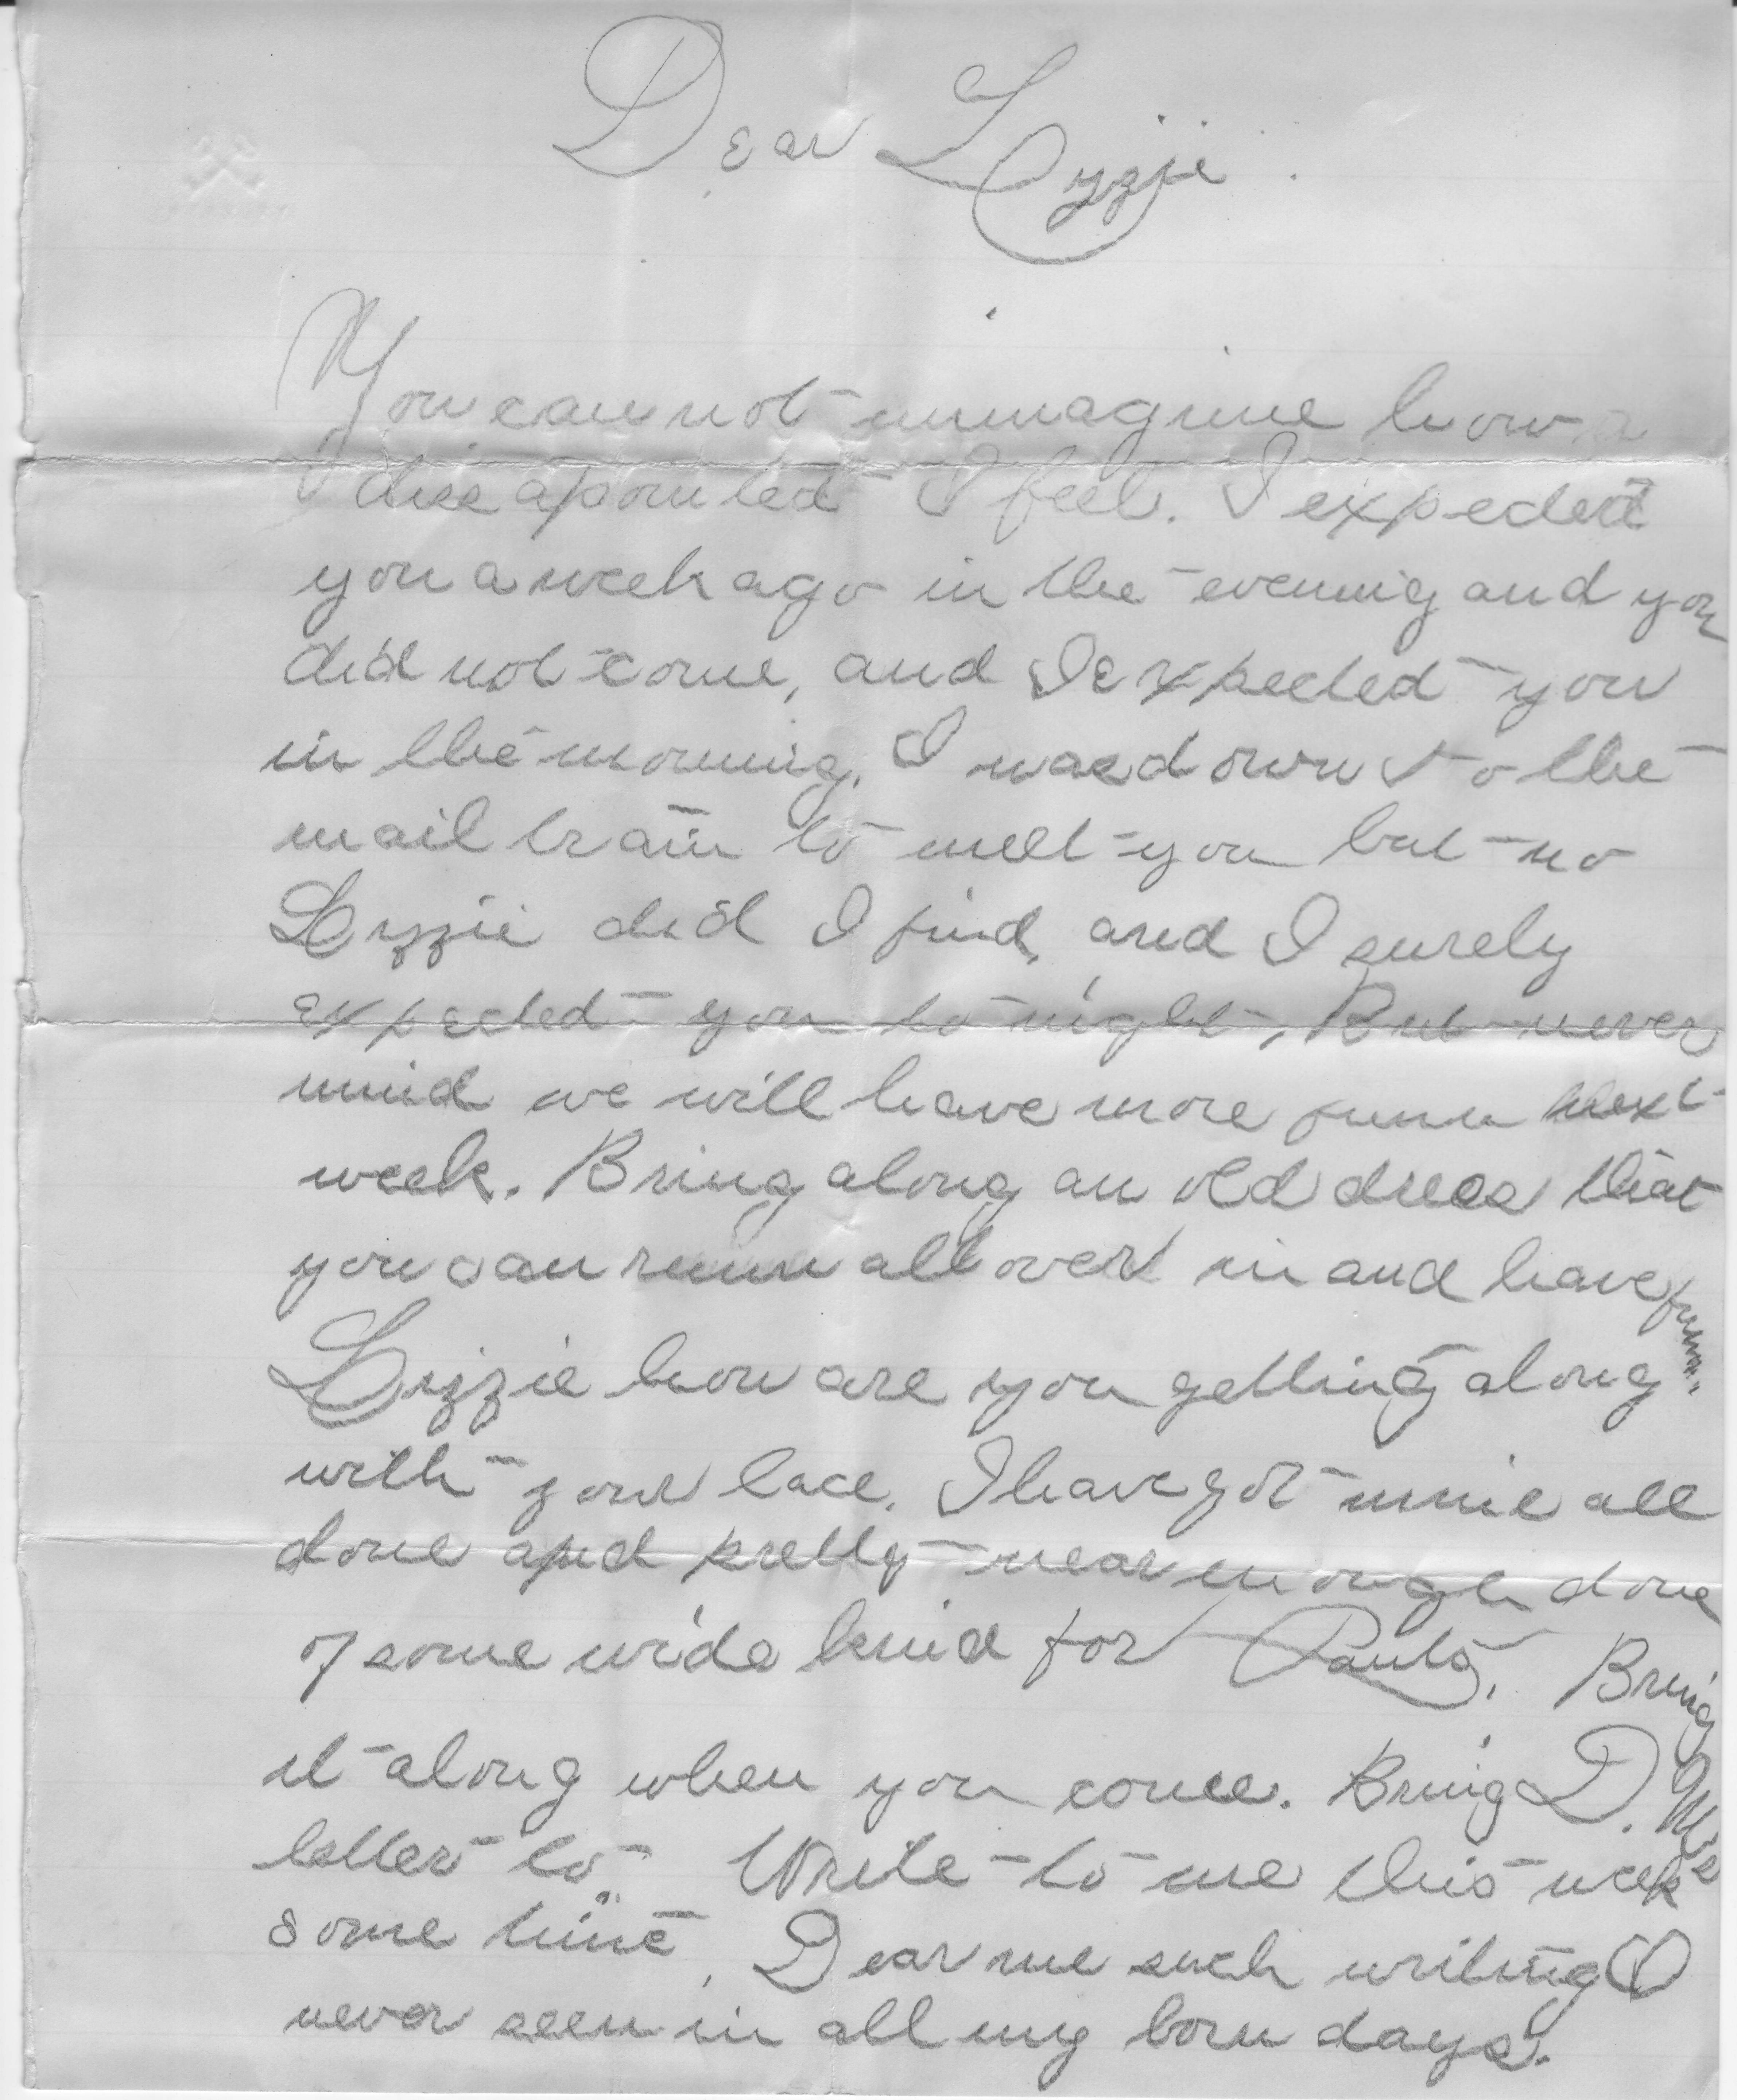 Dear Lizzie.
You can not immagine how
disapointed I feel. I expected
you a week ago in the evening and you
did not come, and I expected you
in the morning. I was down to the
mail train to meet you but no
Lizzie did I find, and I surely
expected you to night, But never
mind we will have more funn next
week. Bring along an old dress that
you can runn all over in and have funn.
Lizzie how are you getting along
with your lace. I have got mine all
done and pretty near enough done
of some wide kind for Pants. Bring
it along when you come. Bring D. M's
letter to. Write to me this week
some time. Dear me such writing I
never seen in all my born days.